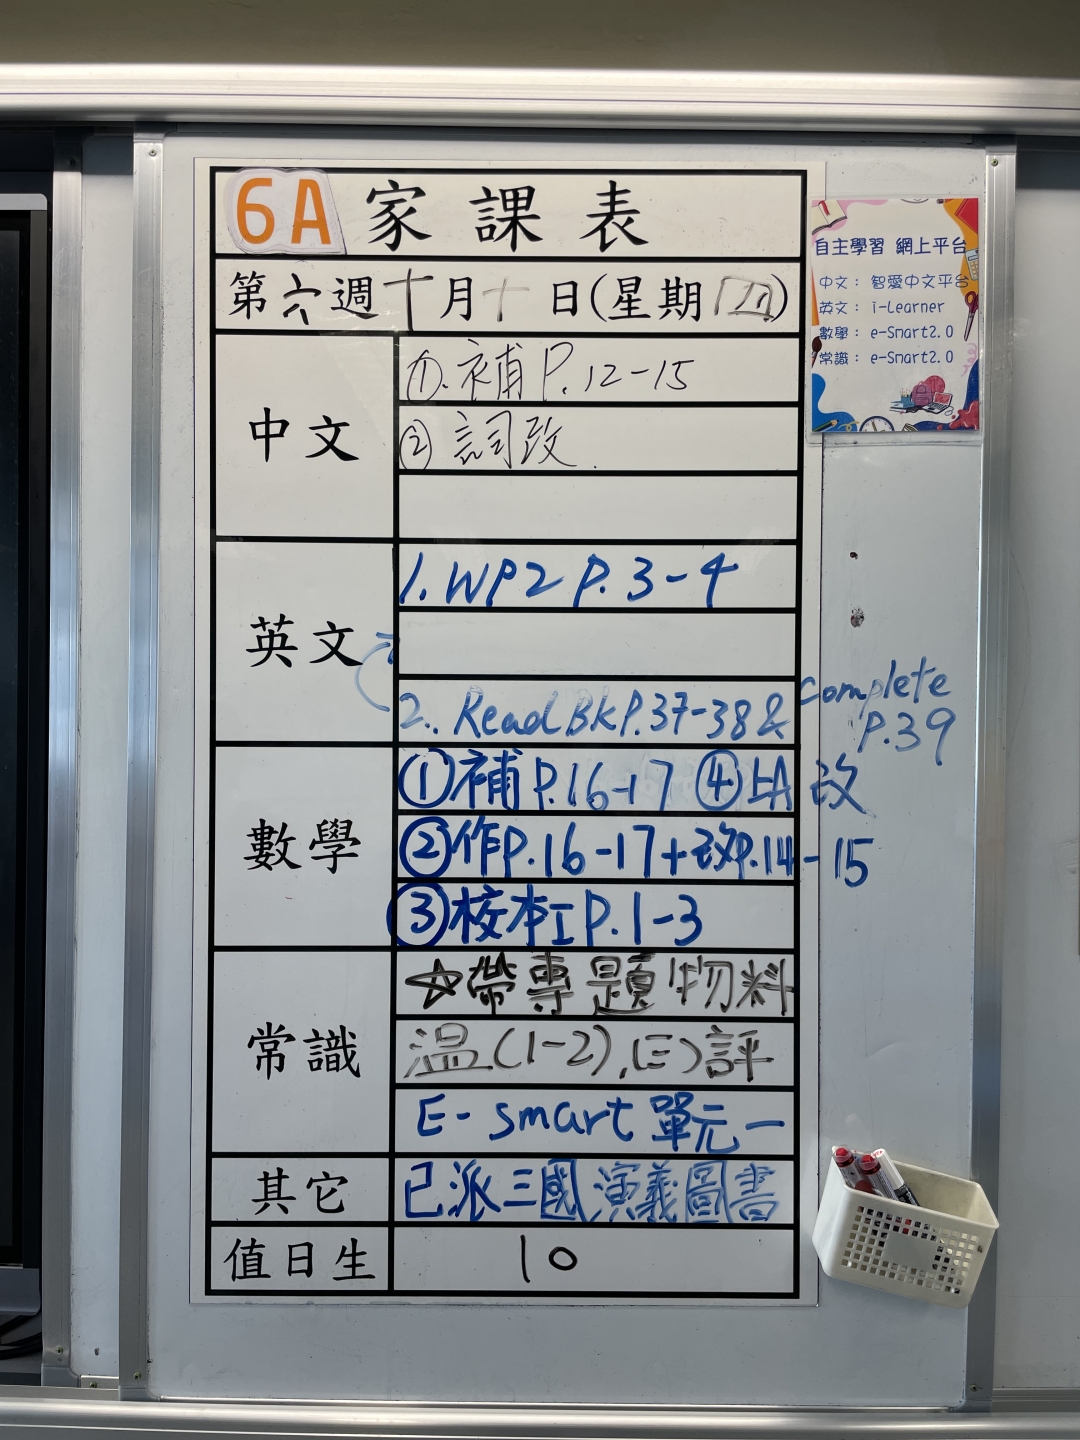 6A 家課表
第六週十月十日(星期四)
自主學習 網上平台
中文： 智愛中文平台
英文： i-Learner
數學： e-Smart2.0
常識： e-Smart2.0
中文
①.補P.12-15
② 詞改.
英文
1. WP2 P.3-4
2.. Read BK P.37-38 & complete
P.39
數學
①補P.16-17 ④上A 改
②作P.16-17+改P.14-15
③校本工P.1-3
常識
☆帶專題物料
溫(1-2),(三)評
E-smart 單元一
其它
已派三國演義圖書
值日生
10